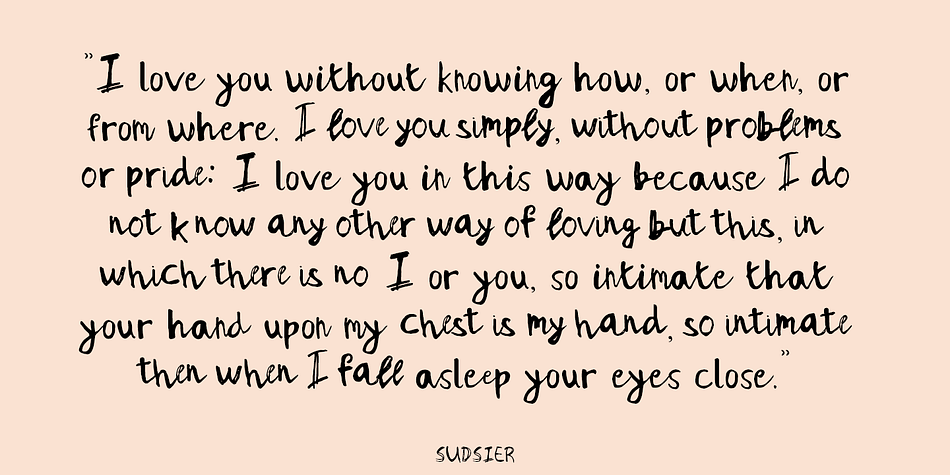 "I love you without knowing how, or when, or
from where. I love you simply, without problems
or pride: I love you in this way because I do
not know any other way of loving but this, in
which there is no I or you, so intimate that
your hand upon my chest is my hand, so intimate
then when I fall asleep your eyes close."
SUDSIER